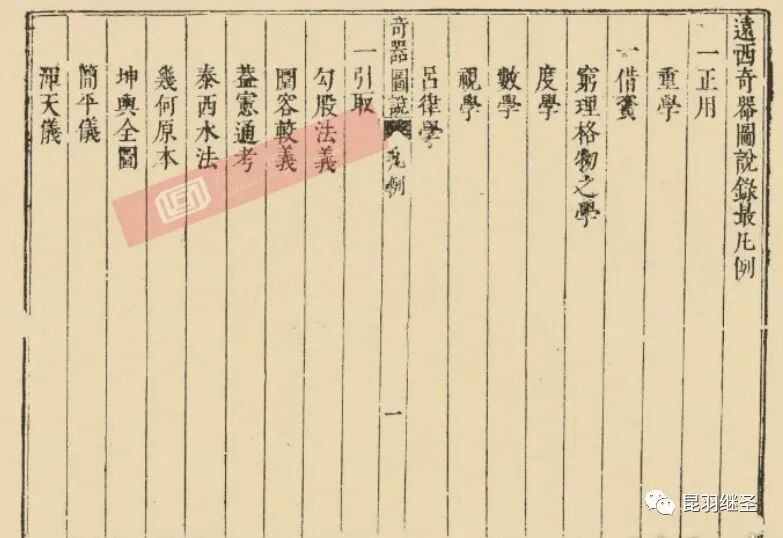 遠西奇器圖說錄最凡例
一正用
重學
一借資
窮理格物之學
度學
數學
視學
呂律學
奇器圖說 凡例 一
一引取
勾股法義
圜容較義
蓋憲通考
泰西水法
幾何原本
坤輿全圖
簡平儀
渾天儀
昆羽继圣